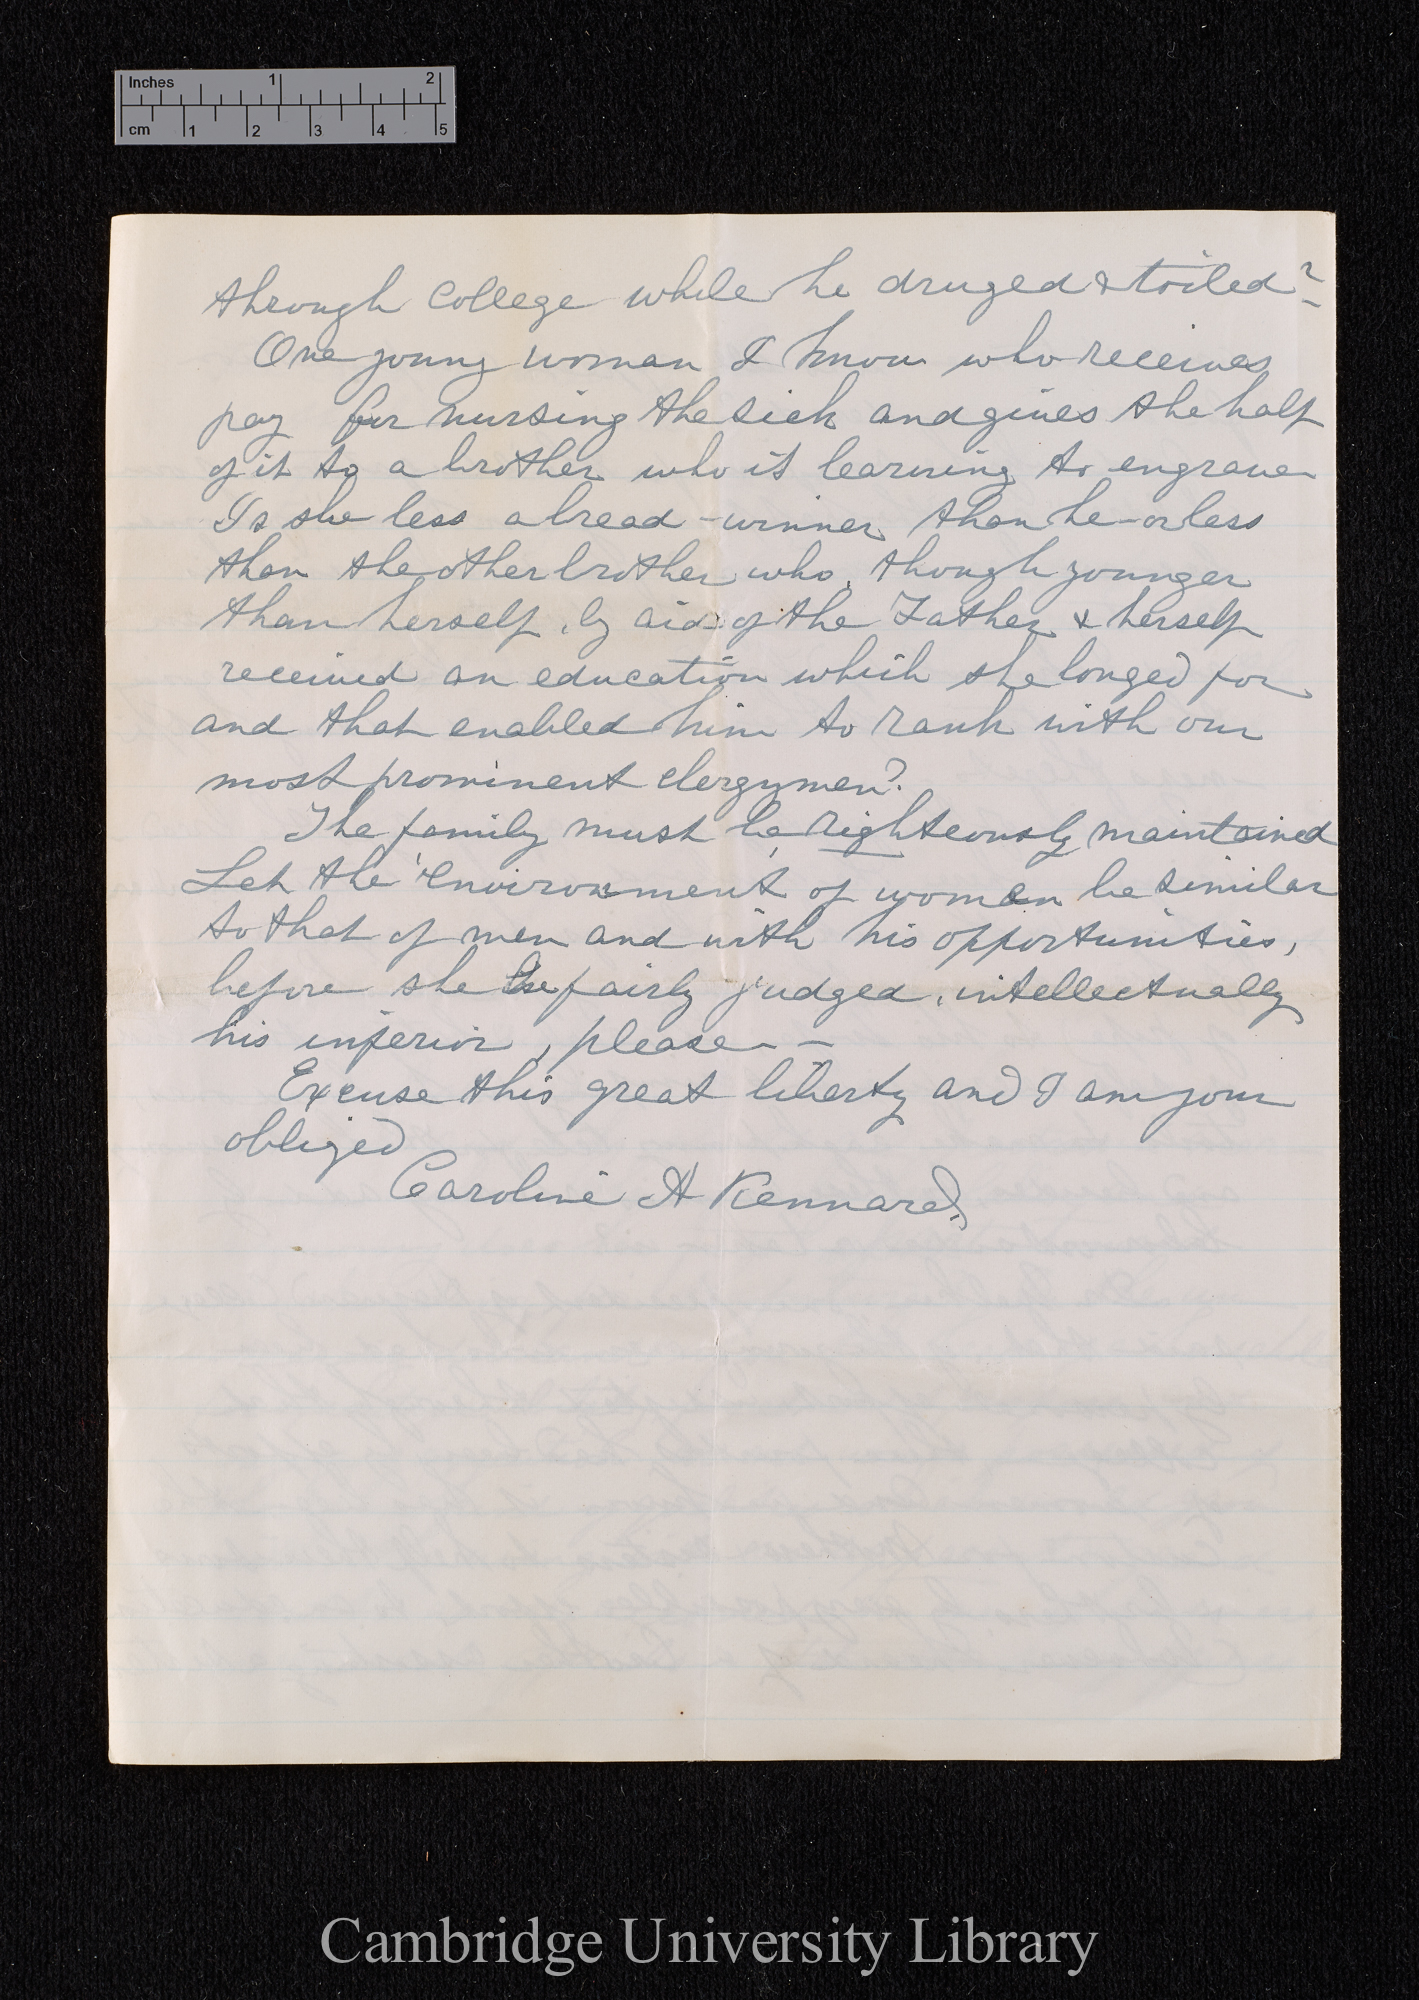 Inches 1 2
cm 1 2 3 4 5
through College while he druged & toiled?
One young woman I know who receives
pay for nursing the sick and gives the half
of it to a brother who is learning to engrave
Is she less a bread-winner than he - or less
than the other brother who, though younger
than herself, by aid of the Father & herself
received an education which she longed for
and that enabled him to rank with our
most prominent clergymen?
The family must be righteously maintained
Let the 'environment' of women be similar
to that of men and with his opportunities,
before she be fairly judged, intellectually
his inferior, please—
Excuse this great liberty and I am your
obliged
Caroline A Kennard.
Cambridge University Library